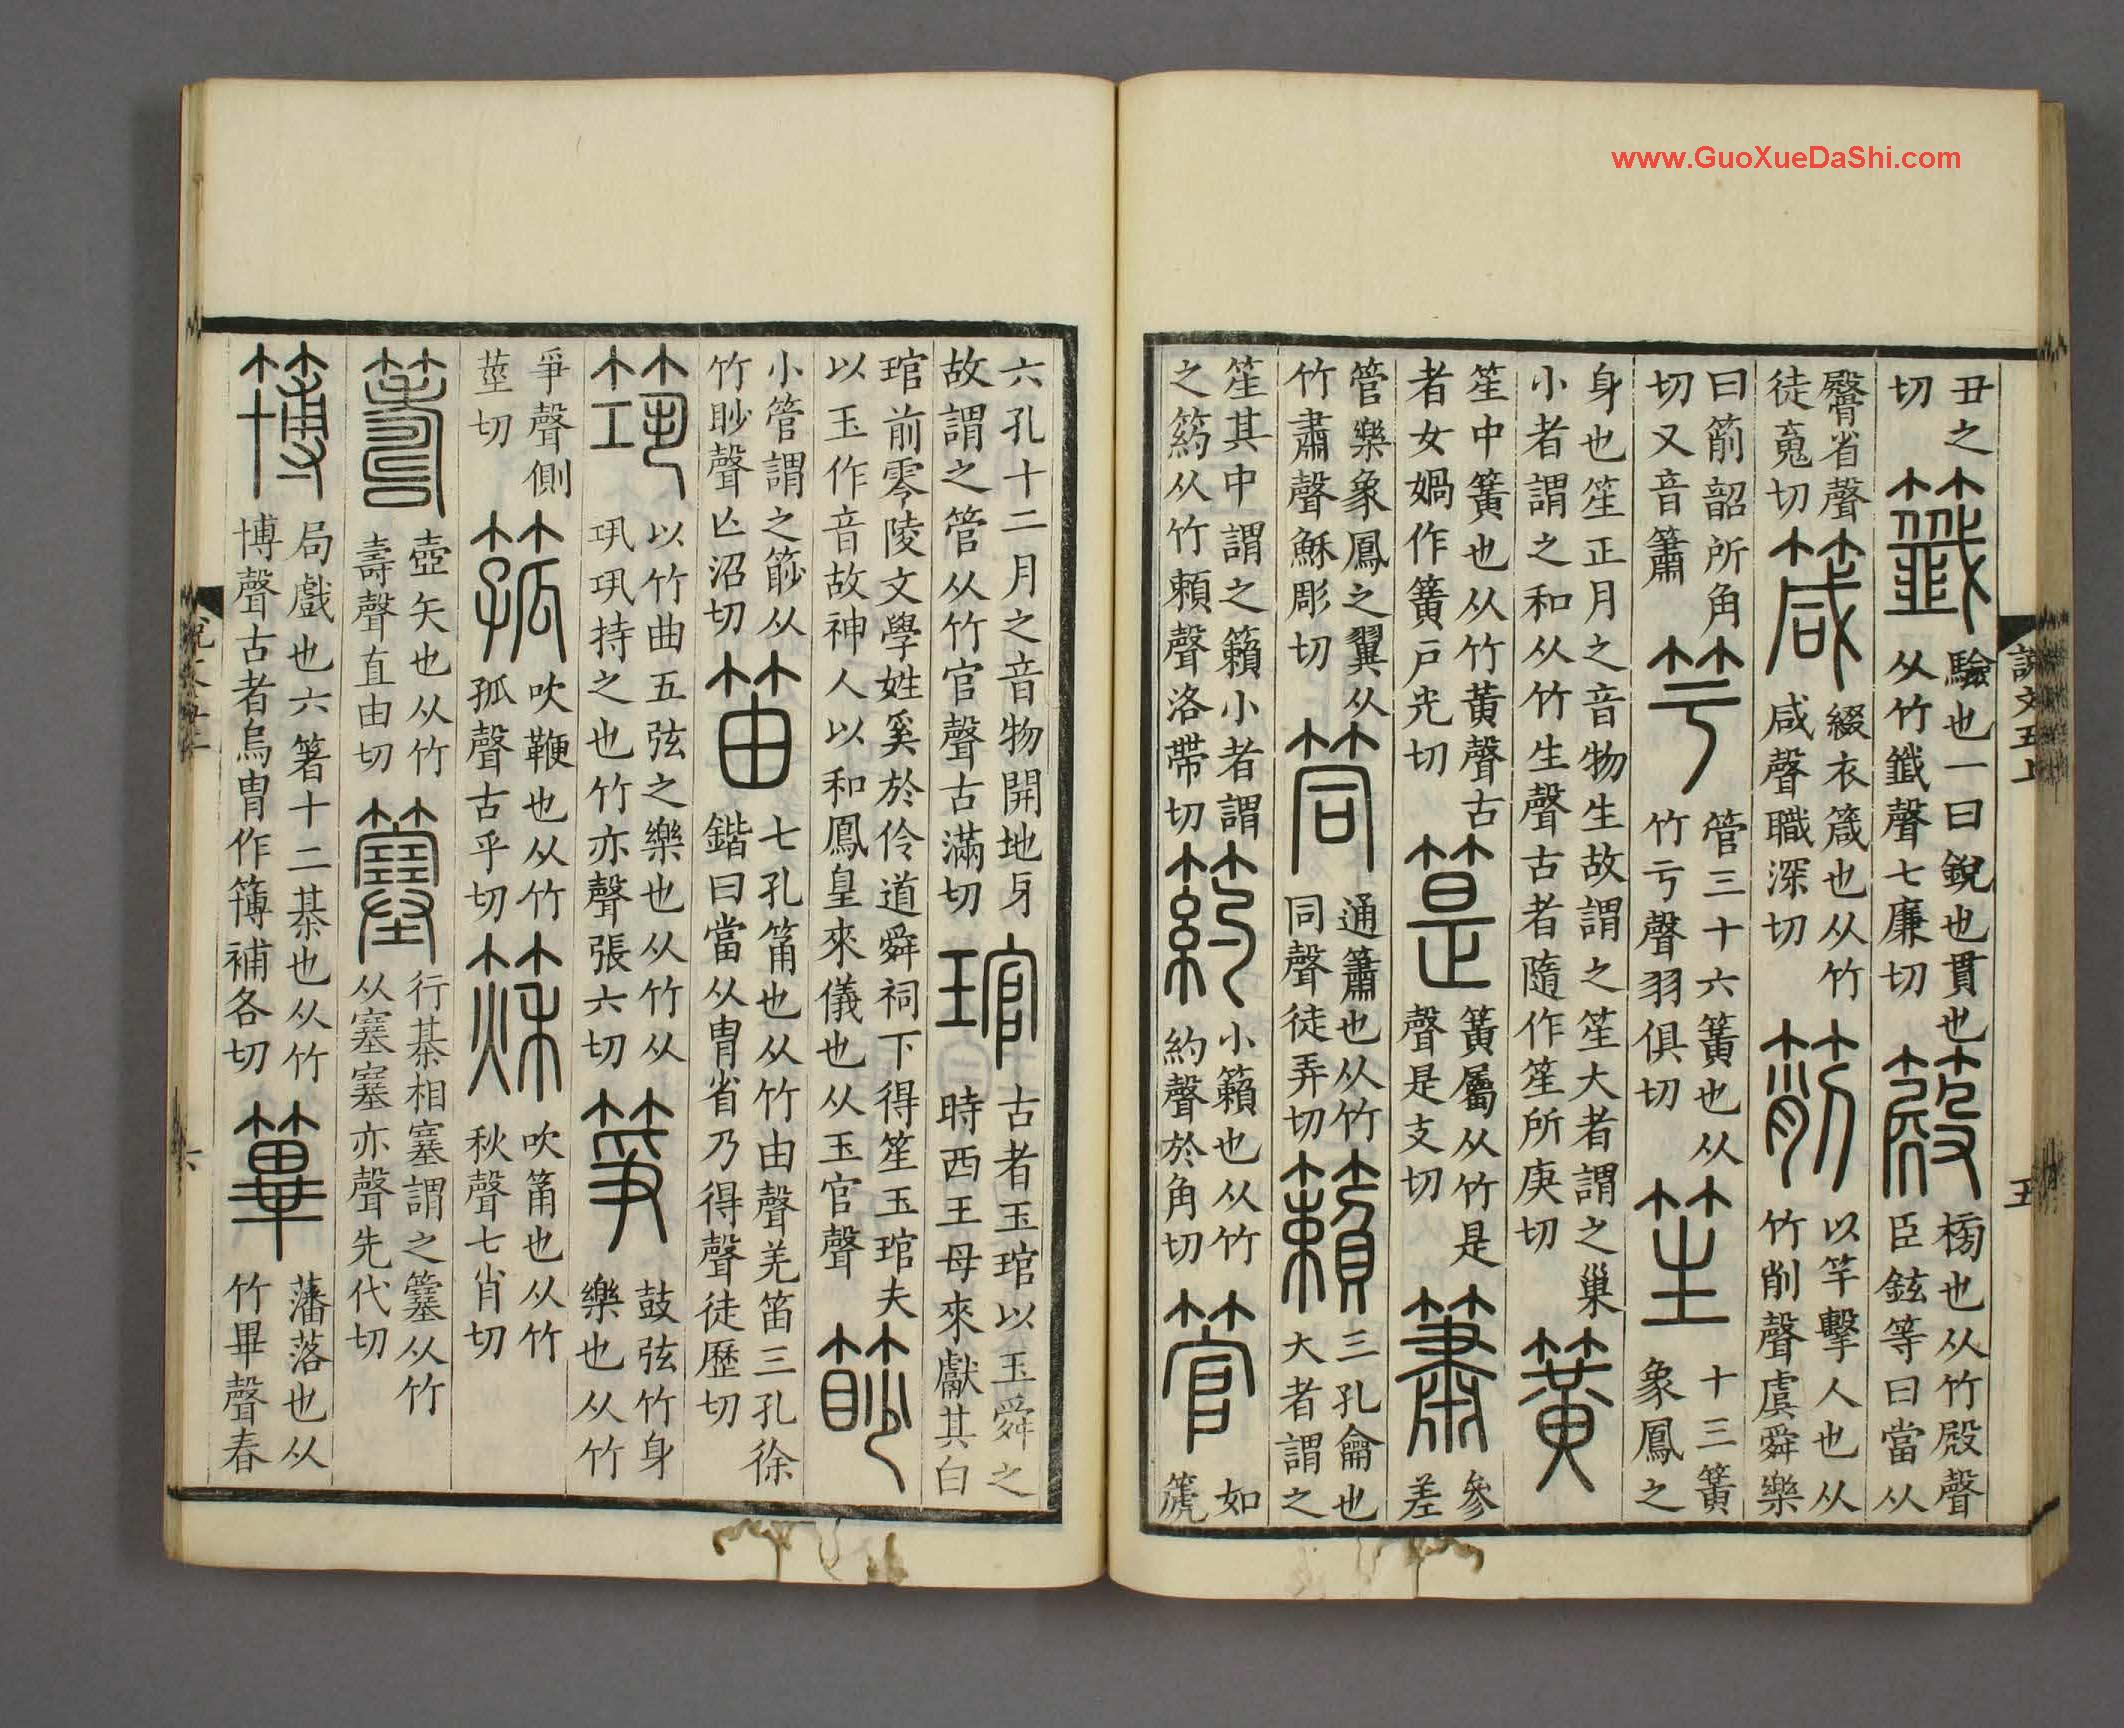 www.GuoXueDaShi.com
説文五上 五
丑之切 籤 驗也一曰銳也貫也从竹韱聲七廉切 𥵜 榜也从竹殿聲臣鉉等曰當从
臀省聲徒䰟切 箴 綴衣箴也从竹咸聲職深切 箾 以竿擊人也从竹削聲虞舜樂
曰箾韶所角切又音簫 竽 管三十六簧也从竹亏聲羽俱切 笙 十三簧象鳳之
身也笙正月之音物生故謂之笙大者謂之巢小者謂之和从竹生聲古者隨作笙所庚切 簧
笙中簧也从竹黄聲古者女媧作簧戸光切 𥮕 簧屬从竹是聲是支切 簫 參差
管樂象鳳之翼从竹肅聲穌彫切 筒 通簫也从竹同聲徒弄切 籟 三孔龠也大者謂之
笙其中謂之籟小者謂之箹从竹賴聲洛帶切 箹 小籟也从竹約聲於角切 管 如篪
六孔十二月之音物開地牙故謂之管从竹官聲古滿切 琯 古者玉琯以玉舜之時西王母來獻其白
琯前零陵文學姓奚於伶道舜祠下得笙玉琯夫以玉作音故神人以和鳳皇來儀也从玉官聲 篎
小管謂之篎从竹眇聲亡沼切 笛 七孔筩也从竹由聲羌笛三孔徐鍇曰當从胄省乃得聲徒歷切
筑 以竹曲五弦之樂也从竹从巩巩持之也竹亦聲張六切 箏 鼓弦竹身樂也从竹
爭聲側莖切 箛 吹鞭也从竹孤聲古乎切 篍 吹筩也从竹秋聲七肖切
籌 壺矢也从竹壽聲直由切 簺 行棊相塞謂之簺从竹从塞塞亦聲先代切
簙 局戲也六箸十二棊也从竹博聲古者烏胄作簙補各切 篳 藩落也从竹畢聲春